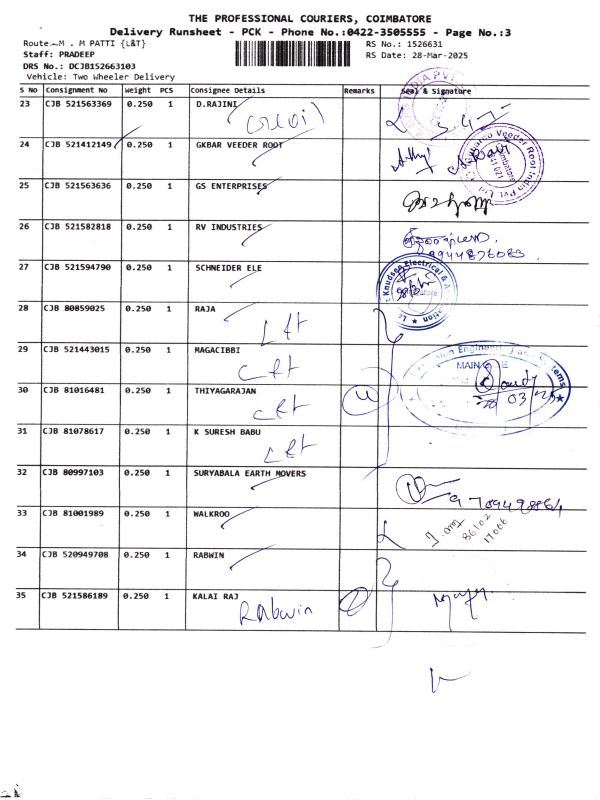 THE PROFESSIONAL COURIERS, COIMBATORE
Delivery Runsheet - PCK - Phone No.:0422-3505555 - Page No.:3
Route:- M . M PATTI {L&T}
RS No.: 1526631
Staff: PRADEEP
RS Date: 28-Mar-2025
DRS No.: DCJB152663103
Vehicle: Two Wheeler Delivery
S No Consignment No Weight PCS Consignee Details Remarks Seal & Signature
23 CJB 521563369 0.250 1 D.RAJINI
24 CJB 521412149 0.250 1 GKBAR VEEDER ROOT
25 CJB 521563636 0.250 1 GS ENTERPRISES
26 CJB 521582818 0.250 1 RV INDUSTRIES
9944876083
27 CJB 521594790 0.250 1 SCHNEIDER ELE
28 CJB 80859025 0.250 1 RAJA
L&t
29 CJB 521443015 0.250 1 MAGACIBBI
L&t
MAIN
30 CJB 81016481 0.250 1 THIYAGARAJAN
L&t
4
31 CJB 81078617 0.250 1 K SURESH BABU
L&t
32 CJB 80997103 0.250 1 SURYABALA EARTH MOVERS
33 CJB 81001989 0.250 1 WALKROO
86102
17006
34 CJB 520949708 0.250 1 RABWIN
35 CJB 521586189 0.250 1 KALAI RAJ
RAbwin
2